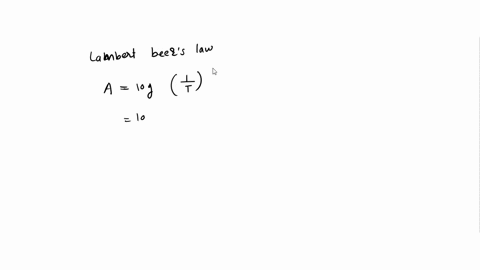 Lambert beer's law
A = log (1/T)
= lo